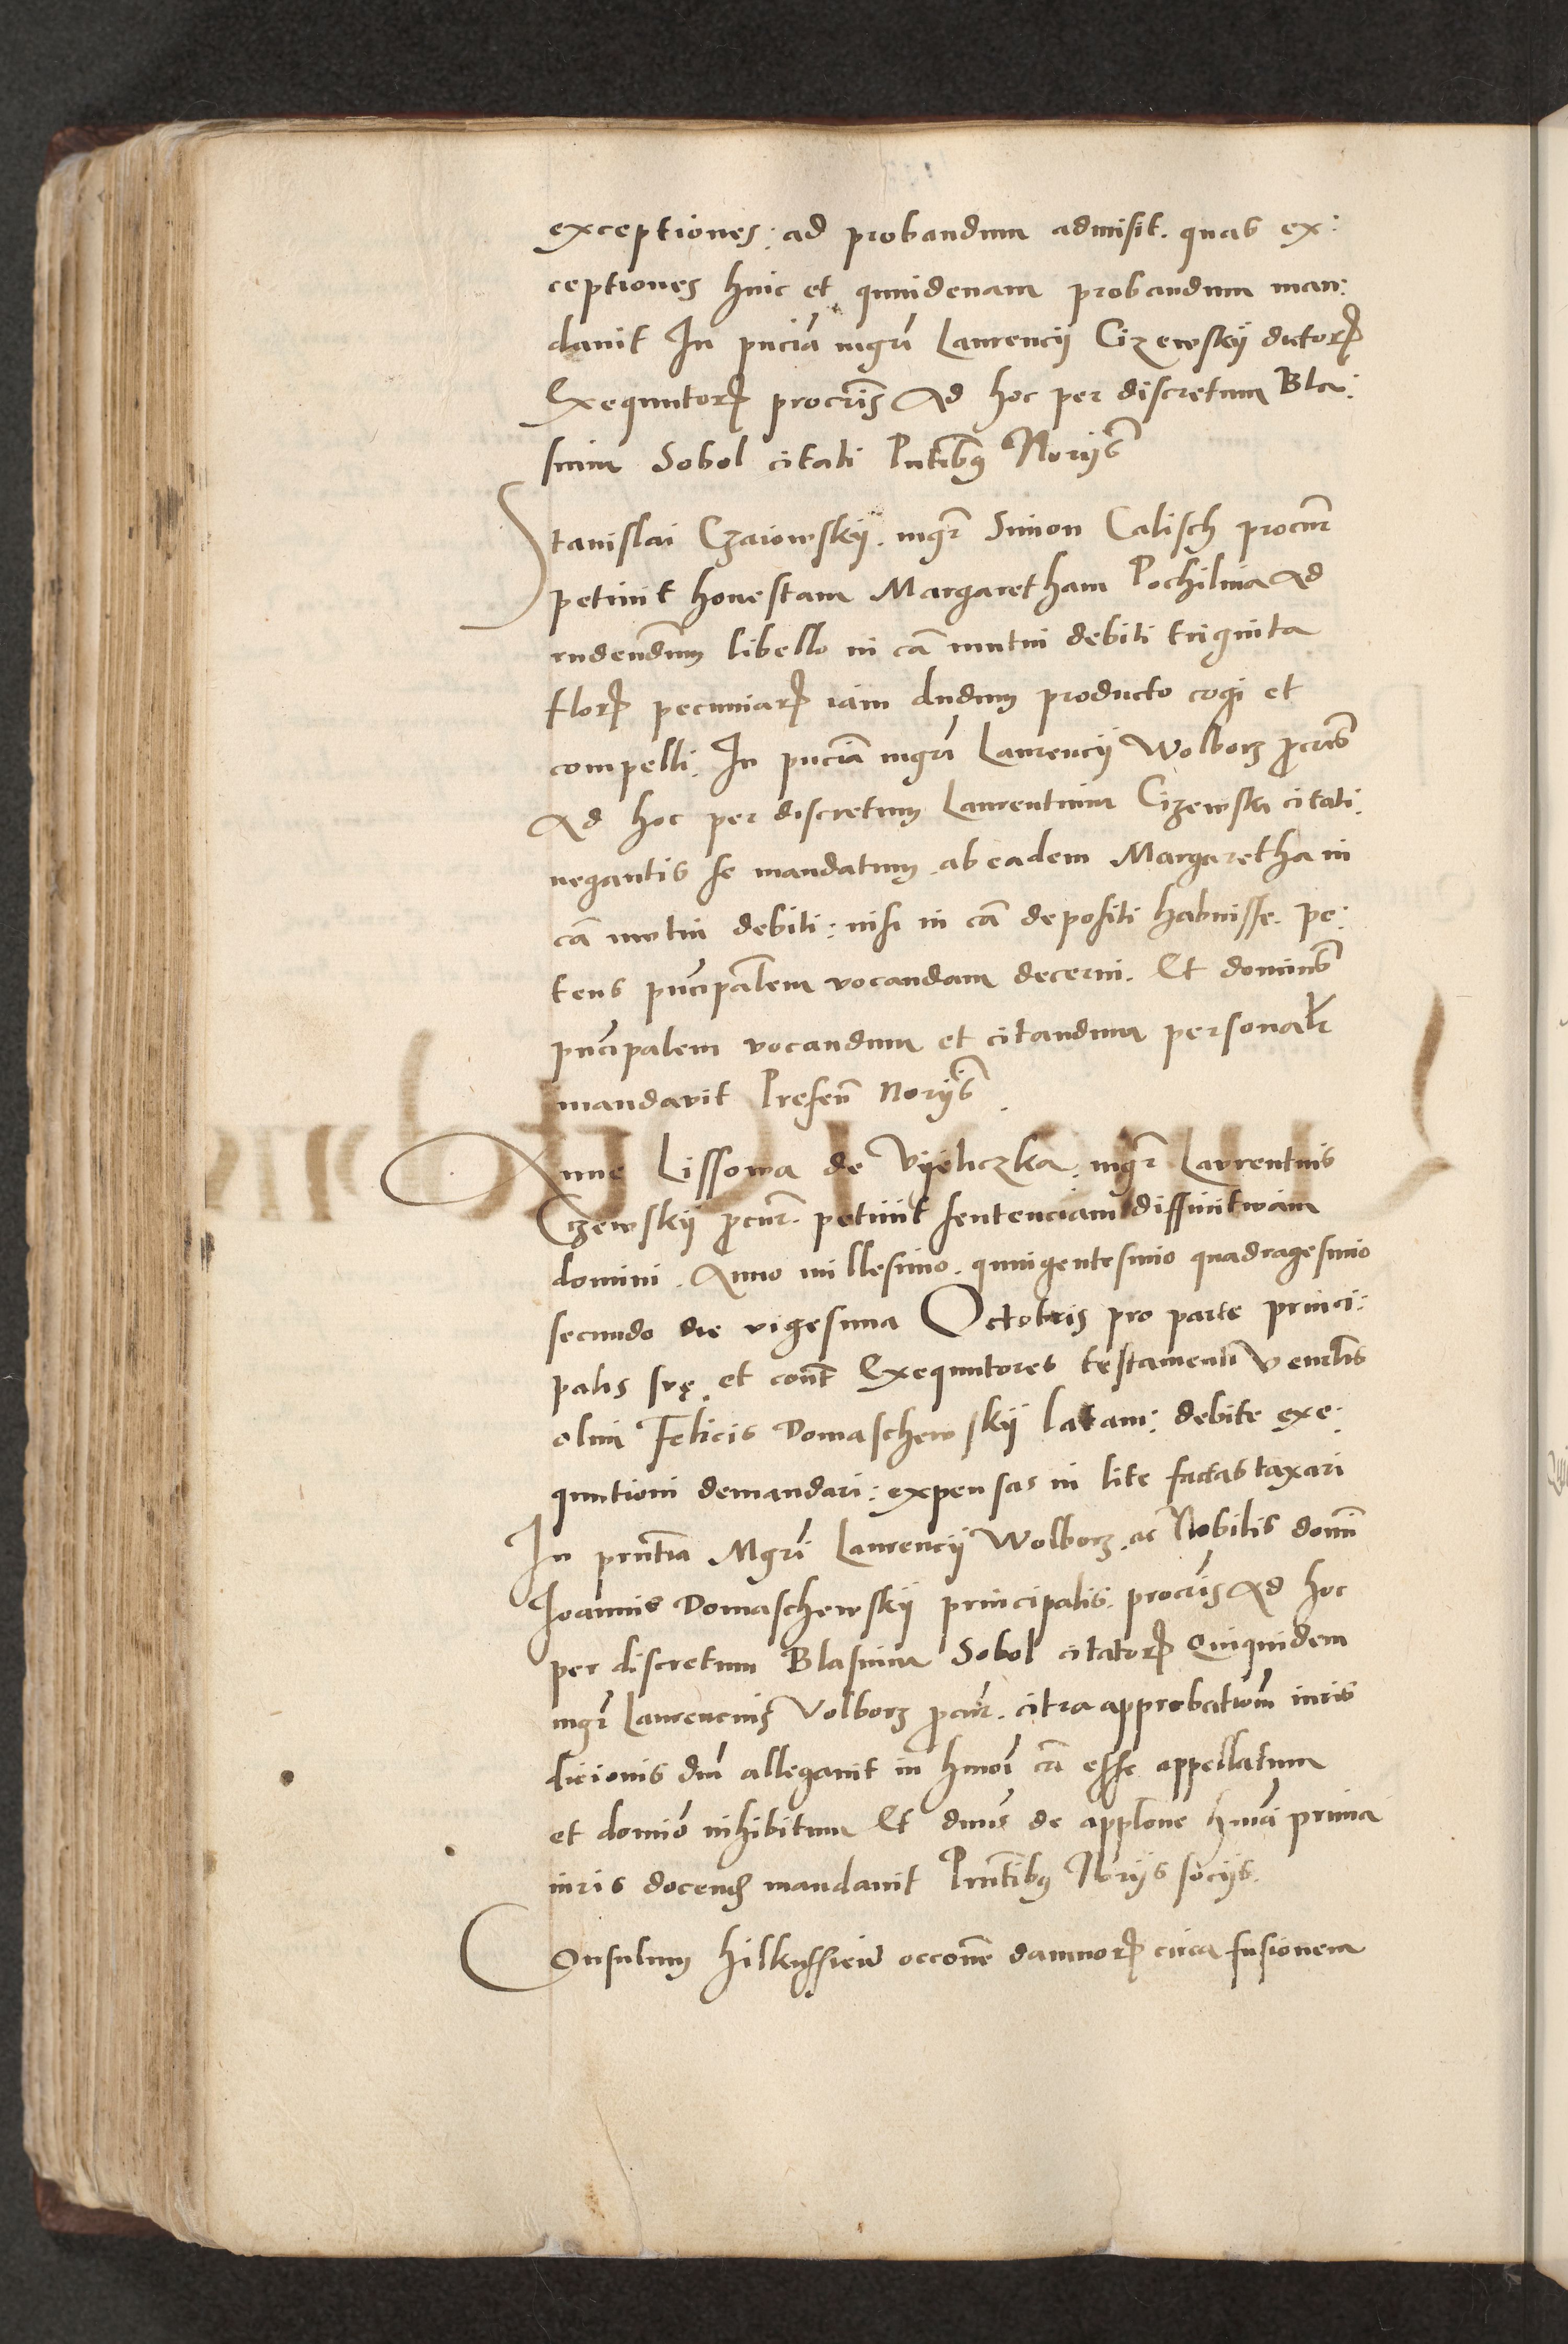 exceptiones: ad probandum admisit. quas ex:
ceptiones huic et quindenam probandum man:
davit In pnciã mgri Laurencij Cizewskij dictorꝝ
Exequutorꝝ procris Ad hoc per discretum Bla:
sium Sobol citati Pntibus Norijs
Stanislai Czaiowskij. mgr Simon Calisch procur
petivit honestam Margaretham Pochilina Ad
rndendum libello in cã mutui debiti triginta
florꝝ pecuniarꝝ iam dudum producto cogi et
compelli. In pnciã mgri Laurencij Wolborz procris
Ad hoc per discretum Laurentium Cizewski citati.
negantis se mandatum ab eadem Margaretha in
cã mutui debiti: nisi in cã depositi habuisse. pe:
tens pncipalem vocandam decerni. Et dominus
pncipalem vocandum et citandum personalr
mandavit Presen Norijs
Anne Lissowa de Vijeliczka. mgr Laurentius
Czewskij procur. petiuit sentenciam diffinitivam
domini. Anno millesimo. quingentesimo quadragesimo
secundo die vigesima Octobris pro parte princi:
palis suę. et cont Exequutores testamenti Venerlis
olim Felicis Domaschewskij latam: debite exe:
quutioni demandari: expensas in lite factas taxari
In prntia Mgri Laurencij Wolborz. ac Nobilis domi
Joannis Domaschewskij principalis. procris Ad hoc
per discretum Blasium Sobol citatorꝝ Quiquidem
mgr Laurencius Volborz procur. citra approbationem iuris
dicionis dni allegavit in hmoi cã esse appellatum
et domio inhibitum Et dnus de applone hmoi prima
iuris docend mandavit Prntibus Norijs socijs.
Consulum Hilkussien occone damnorꝝ circa fusionem